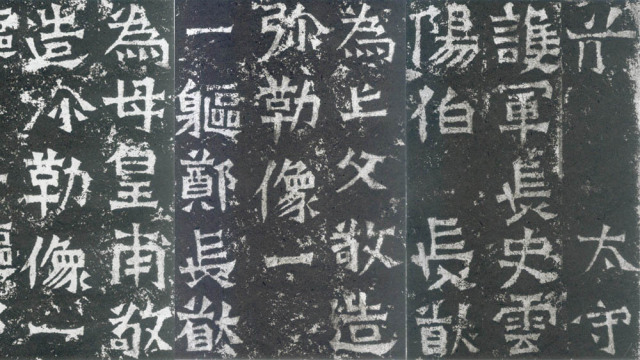 太守
護軍長史雲
陽伯長猷
為亡父敬造
弥勒像一
一軀鄭長猷
為母皇甫敬
造尒勒像一